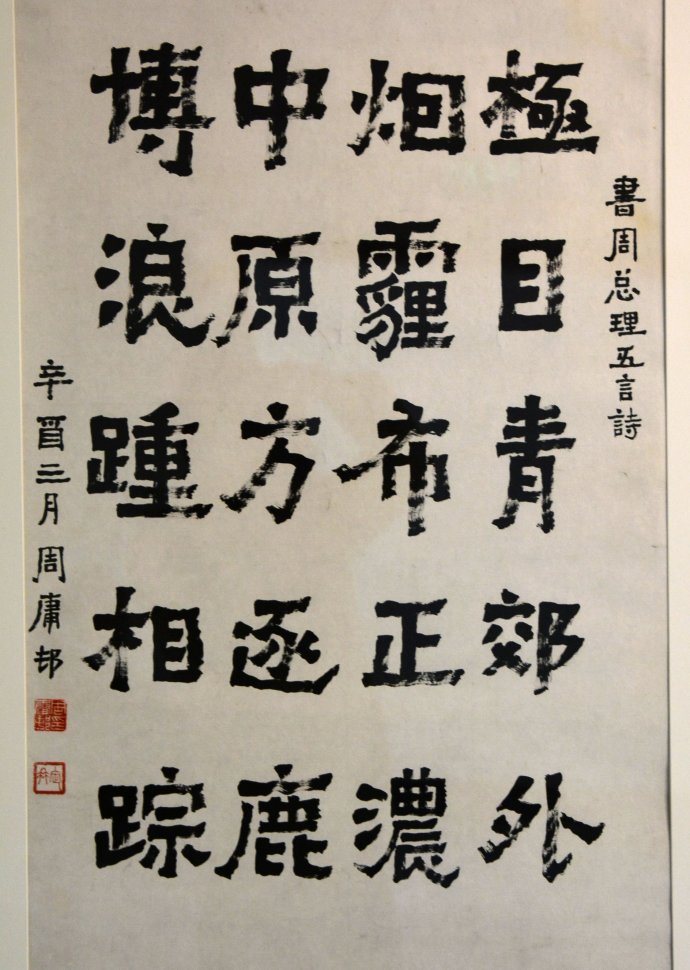 書周总理五言詩
極目青郊外
烟霾布正濃
中原方逐鹿
博浪踵相踪
辛酉三月周庸邨